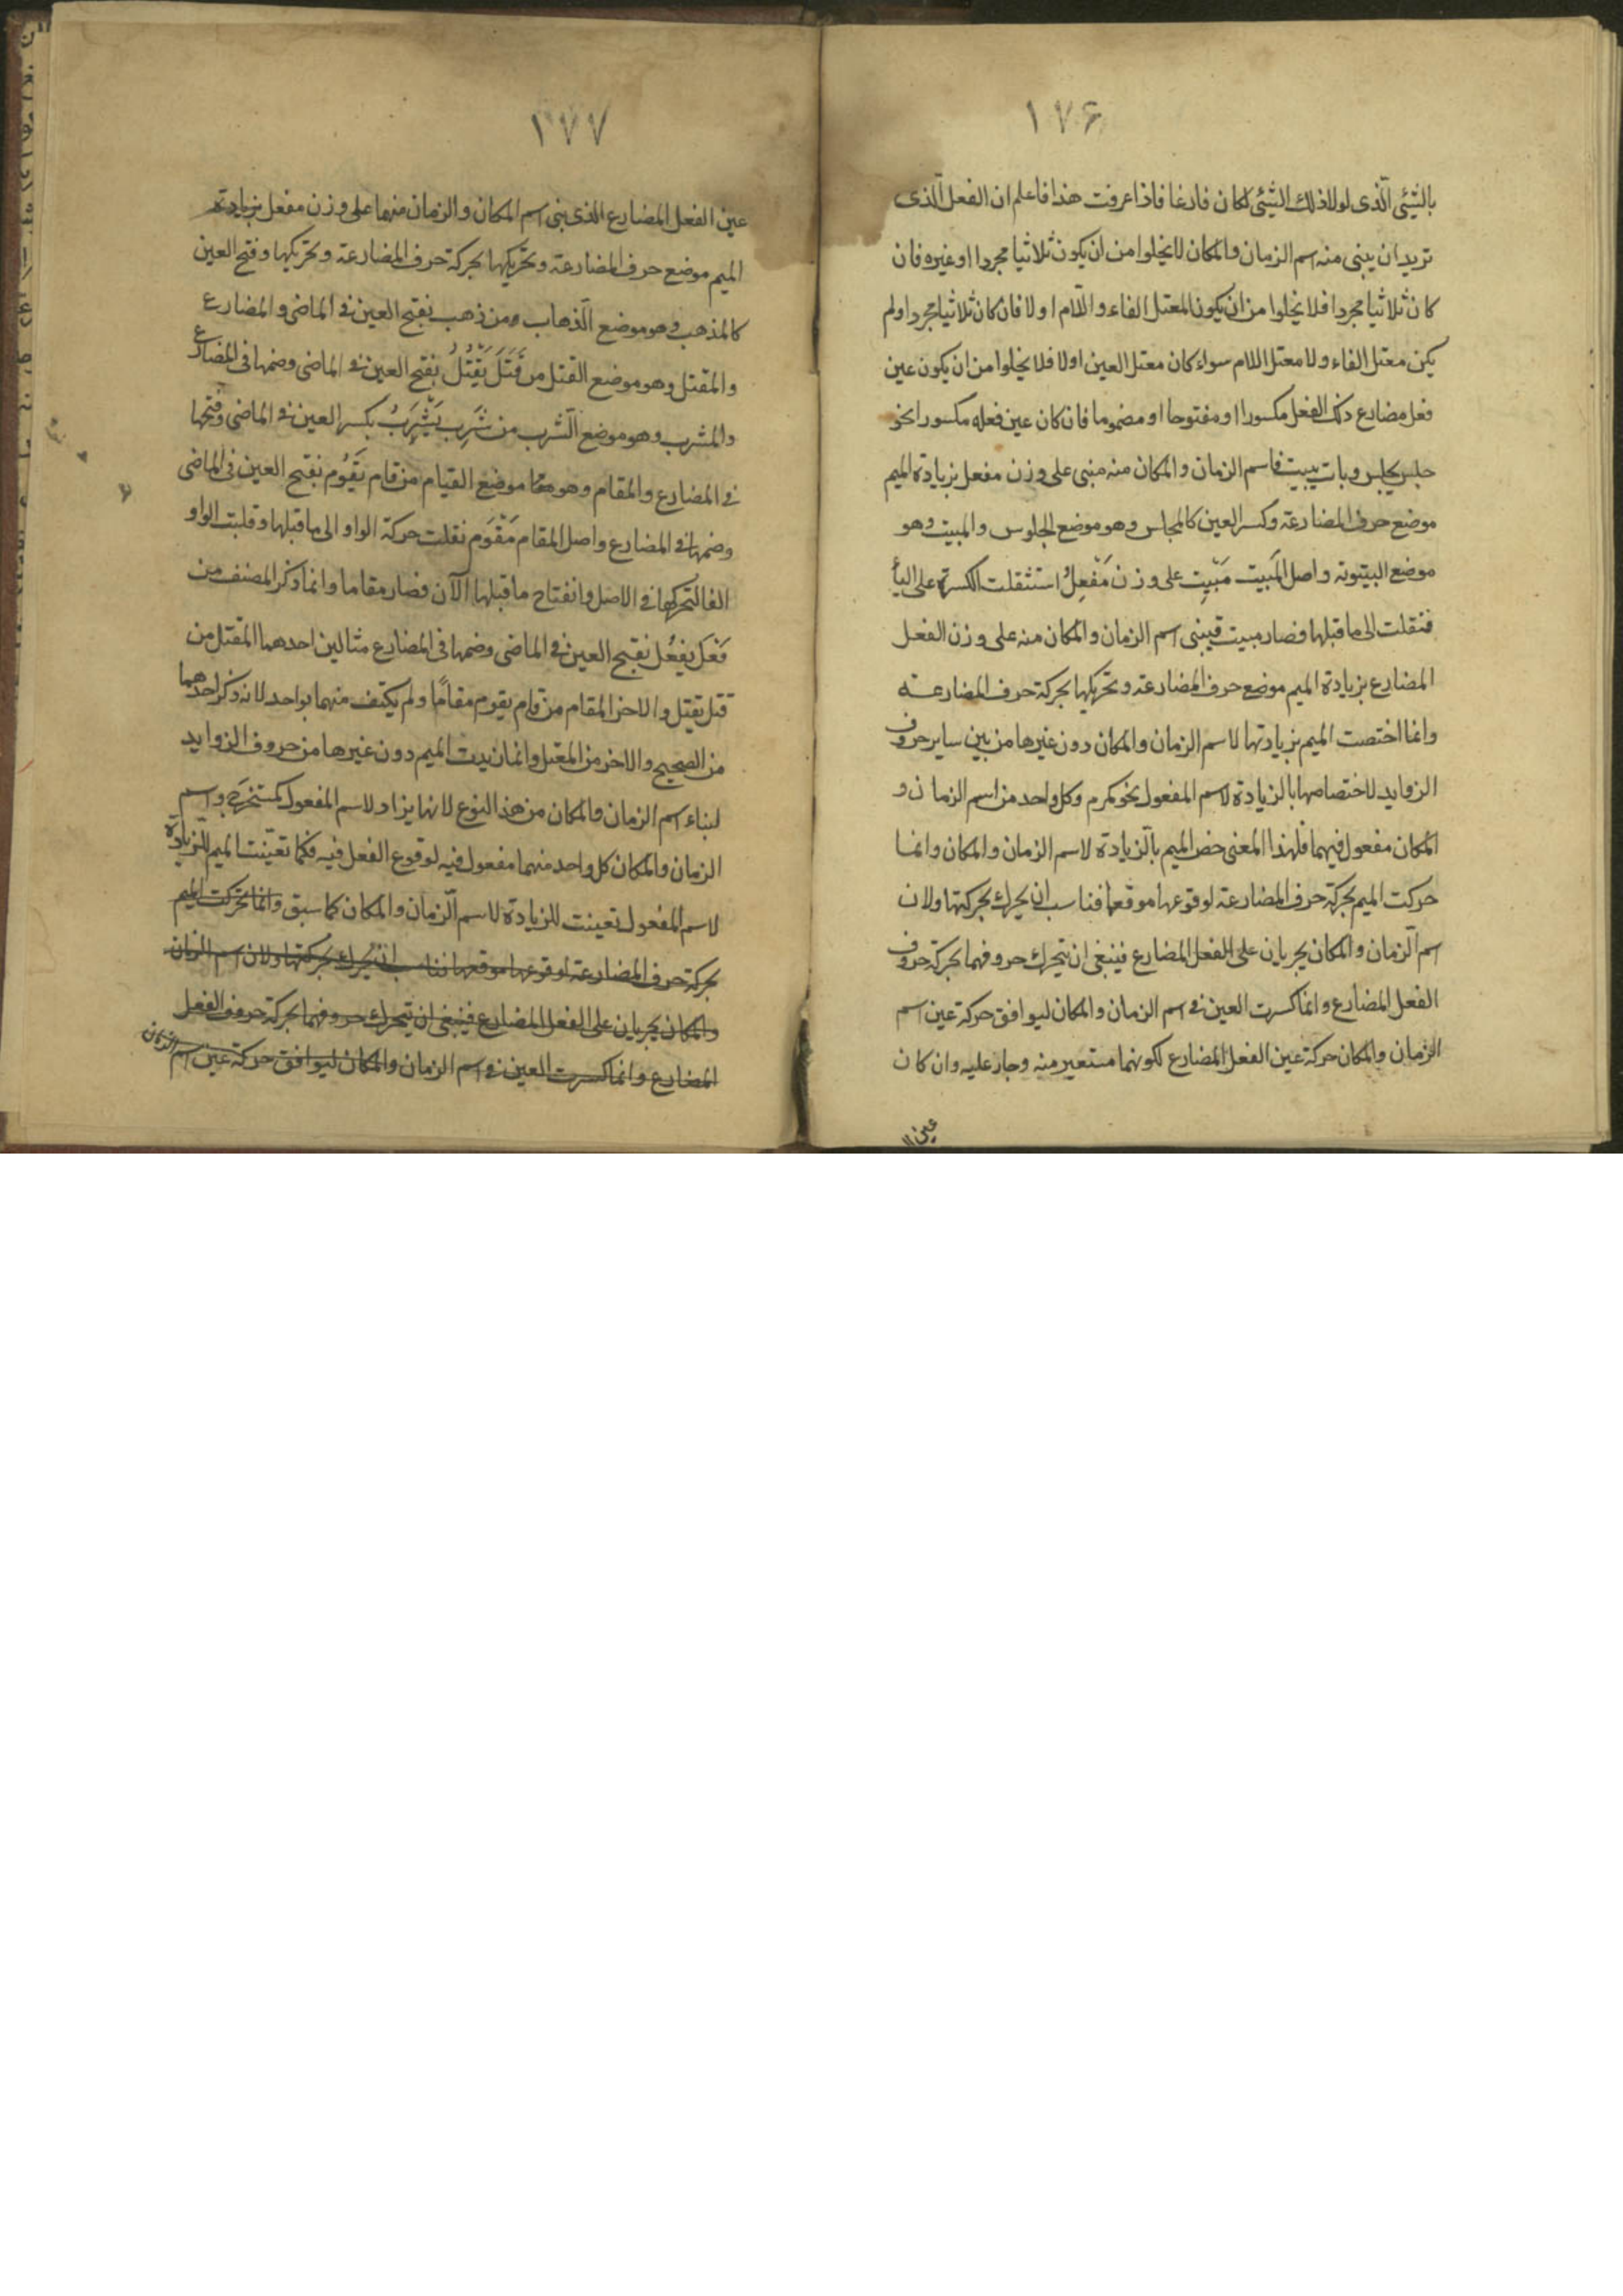 ١٧۶
بالشئ الّذى لولا ذلك الشئ لكان فارغا فاذا عرفت هذا فاعلم ان الفعل الّذى
تريد ان يبنى منه اسم الزمان والمكان لا يخلوا من ان يكون ثلاثيا مجردا او غيره فان
كان ثلاثيا مجردا فلا يخلوا من ان يكون المعتل الفاء واللّام اولا فان كان ثلاثيا مجردا ولم
يكن معتل الفاء ولا معتل اللام سواء كان معتل العين اولا فلا يخلوا من ان يكون عين
فعل مضارع ذلك الفعل مكسورا او مفتوحا او مضموما فان كان عين فعله مكسورا نحو
جلس يجلس وبات يبيت فاسم الزمان والمكان منه مبنى على وزن مفعل بزيادة الميم
موضع حرف المضارعة وكسر العين كالمجلس وهو موضع الجلوس والمبيت وهو
موضع البيتوتة واصل المَبيت مَبْيِت على وزن مَفْعِلُ استثقلت الكسرة على اليأ
فنقلت الى ما قبلها فصار مبيت فيبنى اسم الزمان والمكان منه على وزن الفعل
المضارع بزيادة الميم موضع حرف المضارعة وتحريكها بحركة حرف المضارعة
وانما اختصت الميم بزيادتها لاسم الزمان والمكان دون غيرها من بين ساير حروف
الزوايد لاختصاصها بالزيادة لاسم المفعول نحو مكرم وكل واحد من اسم الزمان و
المكان مفعول فيهما فلهذا المعنى خص الميم بالّزيادة لاسم الزمان والمكان وانما
حركت الميم بحركة حرف المضارعة لوقوعها موقعها فناسب ان يحرك بحركتها ولان
اسم الّزمان والمكان يجريان على الفعل المضارع فينبغى ان يتحرك حروفهما بحركة حروف
الفعل المضارع وانما كسرت العين فى اسم الزمان والمكان ليوافق حركة عين اسم
الزمان والمكان حركة عين الفعل المضارع لكونهما مستعير منه وجار عليه وان كان
عين ال
١٧٧
عين الفعل المضارع الذى بنى اسم المكان والزمان منهما على وزن مفعل بزيادة
الميم موضع حرف المضارعة وتحريكها بحركة حرف المضارعة وتحريكها وفتح العين
كالمذهب وهو موضع الّذهاب ومن ذهب بفتح العين فى الماضى والمضارع
والمقتل وهو موضع القتل من قَتَلَ يَقْتُلُ بفتح العين فى الماضى وضمها فى المضارع
والمشرب وهو موضع الّشرب من شَرِب يَشْرَبُ بكسر العين فى الماضى وفتحها
فى المضارع والمقام وهو موضع القيام من قام يَقُوم بفتح العين فى الماضى
وضمها فى المضارع واصل المقام مَقْوَم نقلت حركة الواو الى ما قبلها وقلبت الواو
الفا لتحركها فى الاصل وانفتاح ما قبلها الآن فصار مقاما وانما ذكر المصنف من
فَعَل يفعُل بفتح العين فى الماضى وضمها فى المضارع مثالين احدهما المقتل من
قتل يقتل والاخر المقام من قام يقوم مقامًا ولم يكتف منهما بواحد لانه ذكر احدهما
من الصحيح والاخر من المعتل وانما زيدت الميم دون غيرها من حروف الزوايد
لبناء اسم الزمان والمكان من هذا النوع لانها يزاد لاسم المفعول كمستخرَج واسم
الزمان والمكان كل واحد منهما مفعول فيه لوقوع الفعل فيه فكما تعيّنت الميم للزيادة
لاسم المفعول تعينت للزيادة لاسم الّزمان والمكان كما سبق وانما تحركت الميم
بحركة حرف المضارعة لوقوعها موقعها فناسب ان يحرك بحركتها ولان اسم الزمان
والمكان يجريان على الفعل المضارع فينبغى ان يتحرك حروفهما بحركة حروف الفعل
المضارع وانما كسرت العين فى اسم الزمان والمكان ليوافق حركة عين اسم الزمان